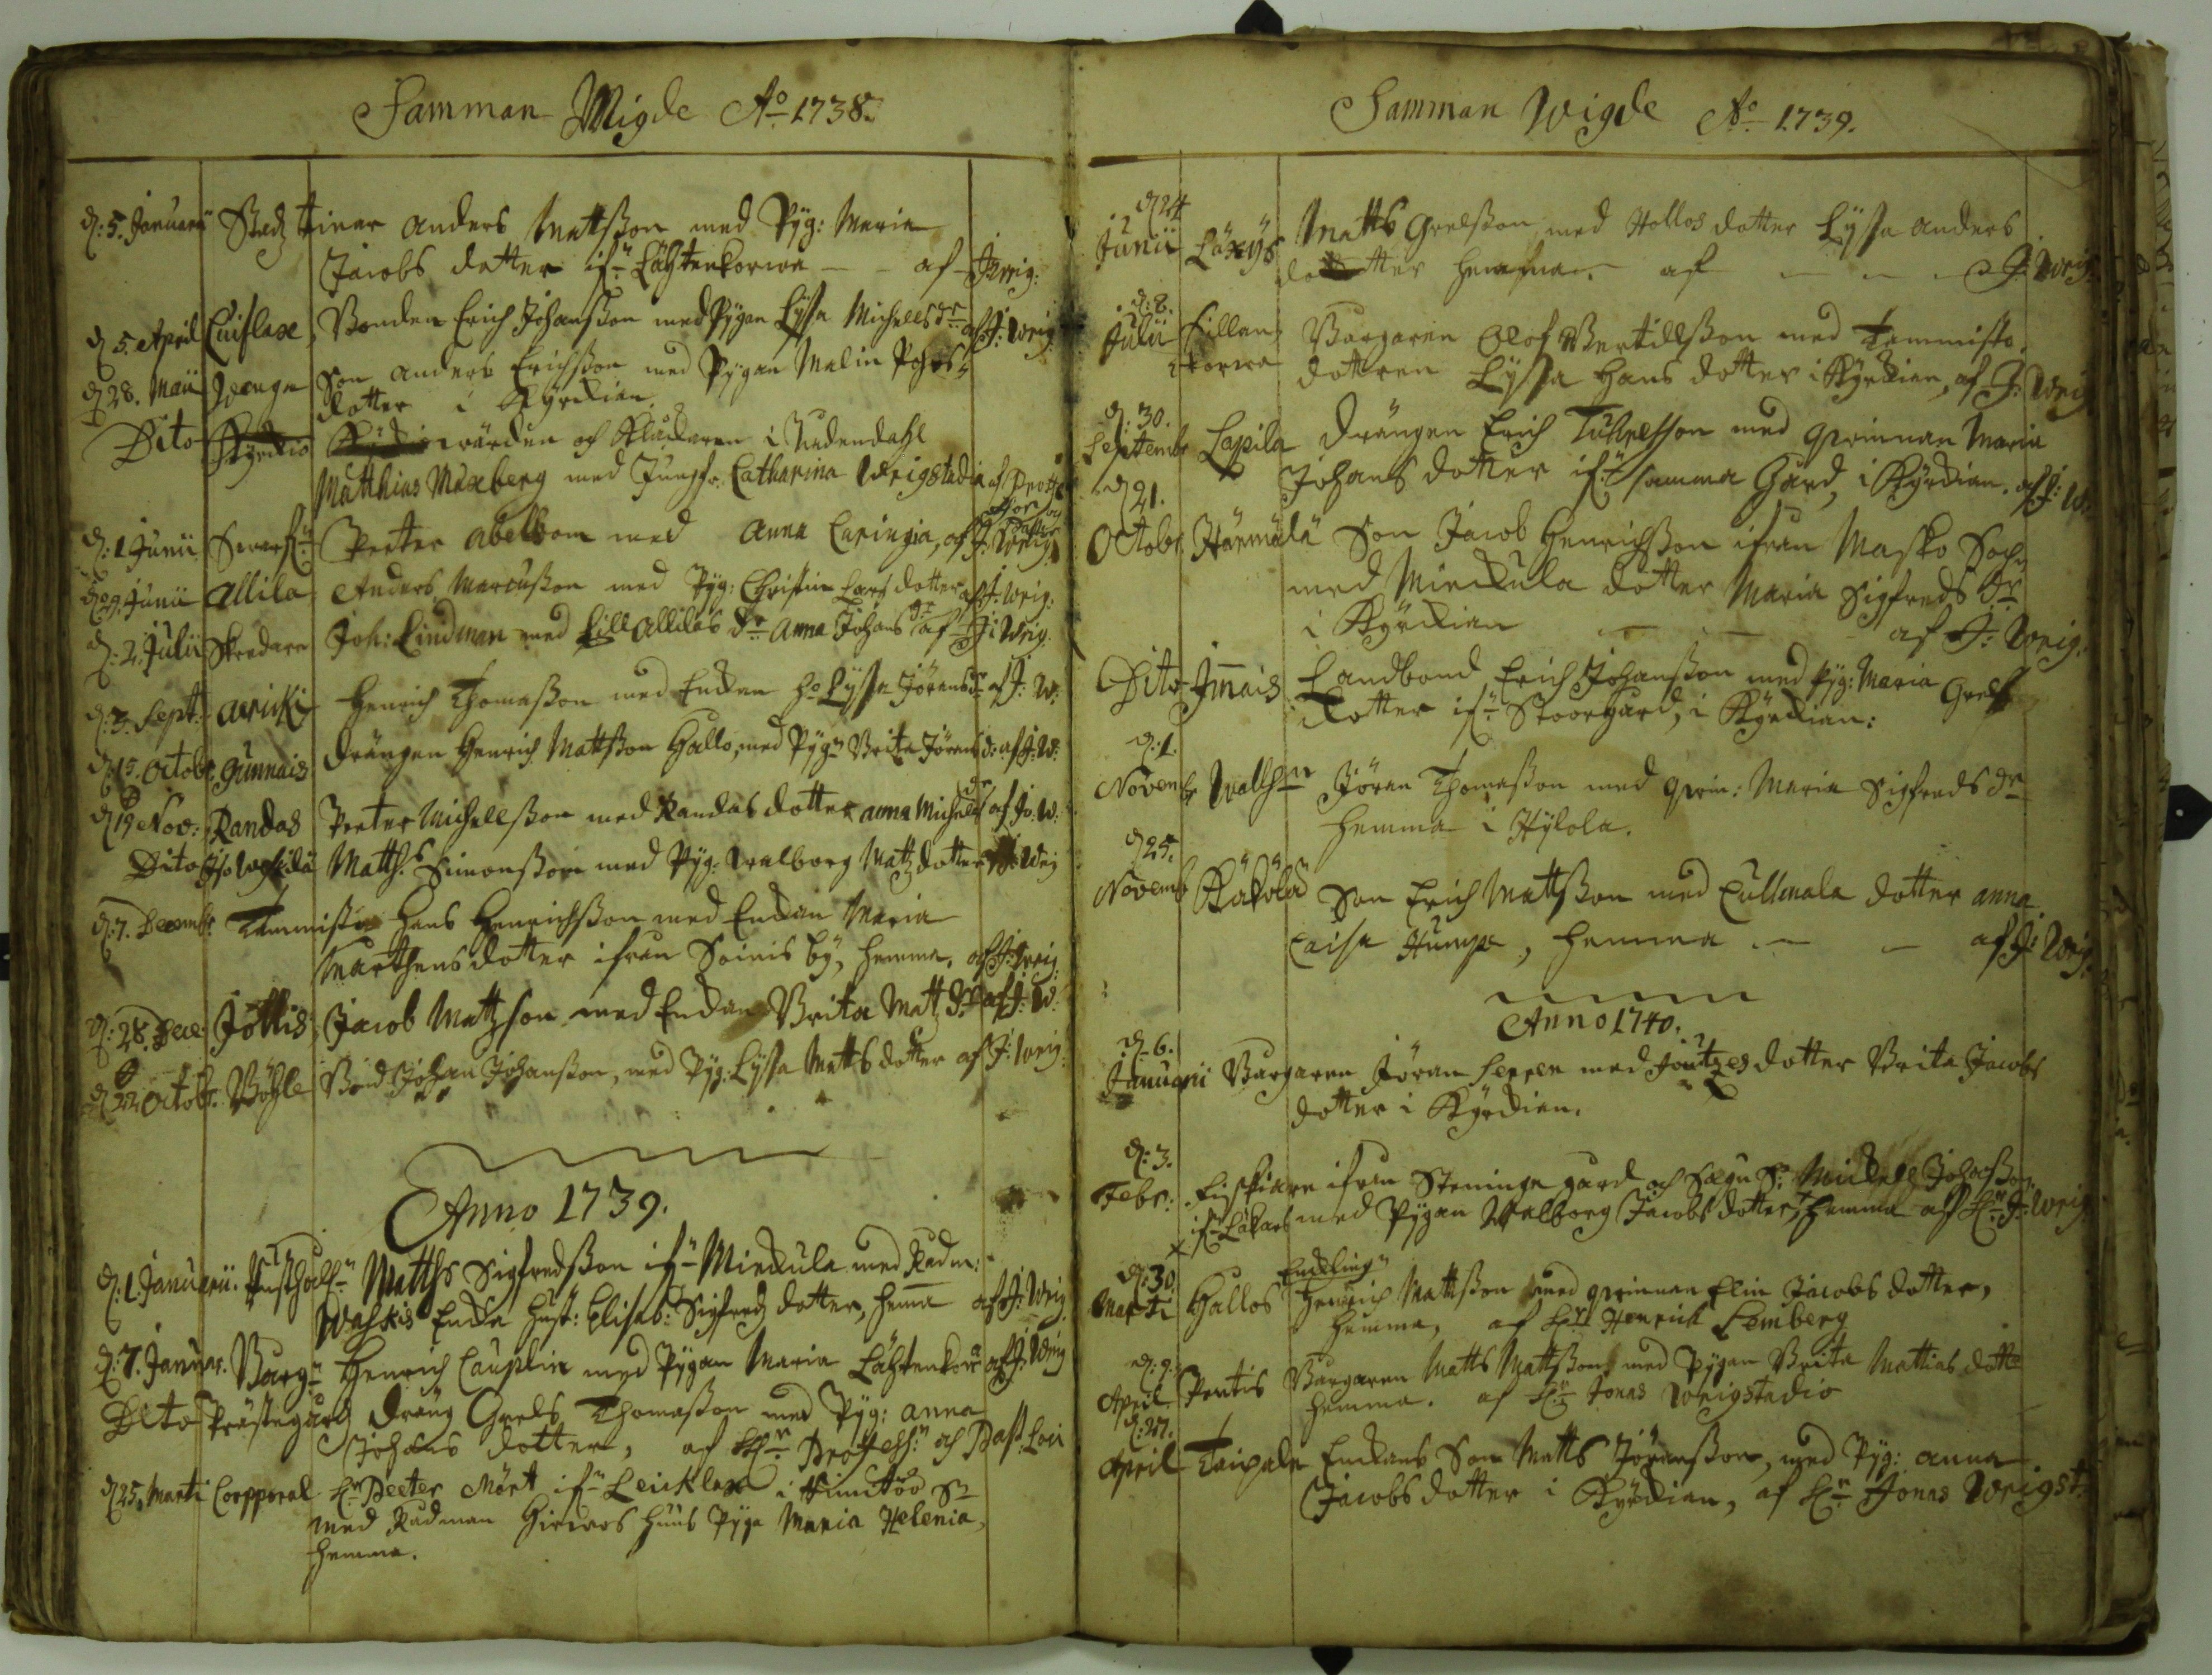 Samman Wigde Aö 1738.
d: 5. Januarii Stadz tienar Anders Mattsson med Pyg: Maria
Jacobs dotter ifn Lähtenkorwa - - af J Wrig:
d 5. April Luislax, Bonden Erich Johansson med Pygan Lysa Michells dr af J: Wrig:
d 28. Maii Son Anders Erichsson med Pygan Malin
dotter i Kyrckian.
Dito wärden och Klåckaren i Nådendahl
Matthias Maxberg med Jungfr. Catharina Wrigstadia af
d: 1 Junii Petter Abelsson med Anna Caringia, af J: Wrig:
d 9. Junii Allila Anders Marcusson med Pyg: Christin Lars dotter af J: Wrig:
d: 2. Julii Skredare Joh: Lindman med Lill Allilas dr Anna Johans dr af J: Wrig.
d: 3. Sept: Henrich Thomasson med Enckan Ho Lysa Jörans dr af J: W:
d: 15. Octobr. Gunnais Drängen Henrich Mattsson Hallo, med Pygn Brita Jörans d: af J: W:
d 19 Nov: Randas Peeter Michellsson med Randas dotter Anna Michels dr af Jo: W:
Dito Matth. Simonsson med Pyg: Walborg Matz dotter af J: Wrig
d: 7. Decembr. Tammisto Hans Henrichsson med Enckan Maria
Marthens dotter ifrån Soinis by, hemma, af J: Wrig:
d: 28. Dec: Jöllis, Jacob Matzson med Enckan Brita Matz dr af J: W:
d 22 Octobr. Böhle Bond Johan Johansson, med Pyg: Lysa Matts dotter af J: Wrig:
Anno 1739.
d: 1. Januarii. Matths Sigfredsson ifn Mickula med Radm:
Waskis Encka Hust: Elisab: Sigfredz dotter, hemma af J: Wrig
d: 7. Januar. Borgn Henrich Cauplin med Pygan Maria Lähtenkorw af J: Wrig
Dito Prästegård Dräng Grels Thomasson med Pyg: Anna
Johans dotter, af Hr Professn och Past:
d 25. Marti Corpporal Hr Peeter Mört ifn Leiklax i Kimitoo Sn
med Radman Hirwos huus Pyga Maria Helenia,
hemma.
Samman Wigde Aö 1739.
d 24
Junii Löxys Matts Grelsson med Hollos dotter Lysa Anders
dotter hemma. af - - - J: Wrig:
d: 8.
Julii Lillan-
korwa Borgaren Olof Bertillsson med Tammisto
dotteren Lysa Hans dotter i Kyrckian, af J: Wrig
d: 30.
Septembr Lapila Drängen Erich Tuhresson med Qwinnan Maria
Johans dotter ifn samma Gård, i Kyrckian. af J: W:
d 21.
Octobr. Härmälä Son Jacob Henrichsson ifrån Masko Sochn
med Mickula dotter Maria Sigfreds dr
i Kyrckian - - af J: Wrig:
Dito Immais Landbond Erich Johansson med Pyg: Maria Grels
dotter ifn Stoorgård, i Kyrckian:
d: 1.
Novembr Jöran Thomasson med Qwin: Maria Sigfreds dr
hemma i Hylola.
d 25.
Novemb Käköla Son Erich Mattsson med Cullmala dotter Anna
Caisa Humpe, hemma - - af J: Wrig:
Anno 1740.
d. 6.
Januarii Borgaren Jöran Seppen med Joutzes dotter Brita Jacobs
dotter i Kyrckian.
d: 3.
Febr: ifrån Steninge gård och Sagu S: Mickel Johansson
med Pygan Walborg Jacobs dotter, hemma af Hr J: Wrig
d: 30.
Marti Hallos Enckling
Henrich Mattsson med Qwinnan Elin Jacobs dotter,
hemma, af Hr Henrich Lemberg
d: 9.
April Pertis Borgaren Matts Mattsson med Pygan Brita Mattias dotter
hemma. af Hr Jonas Wrigstadio
d: 27.
April Taipale Enckans Son Matts Jöransson, med Pyg: Anna
Jacobs dotter i Kyrckian, af Hr Jonas Wrigst: